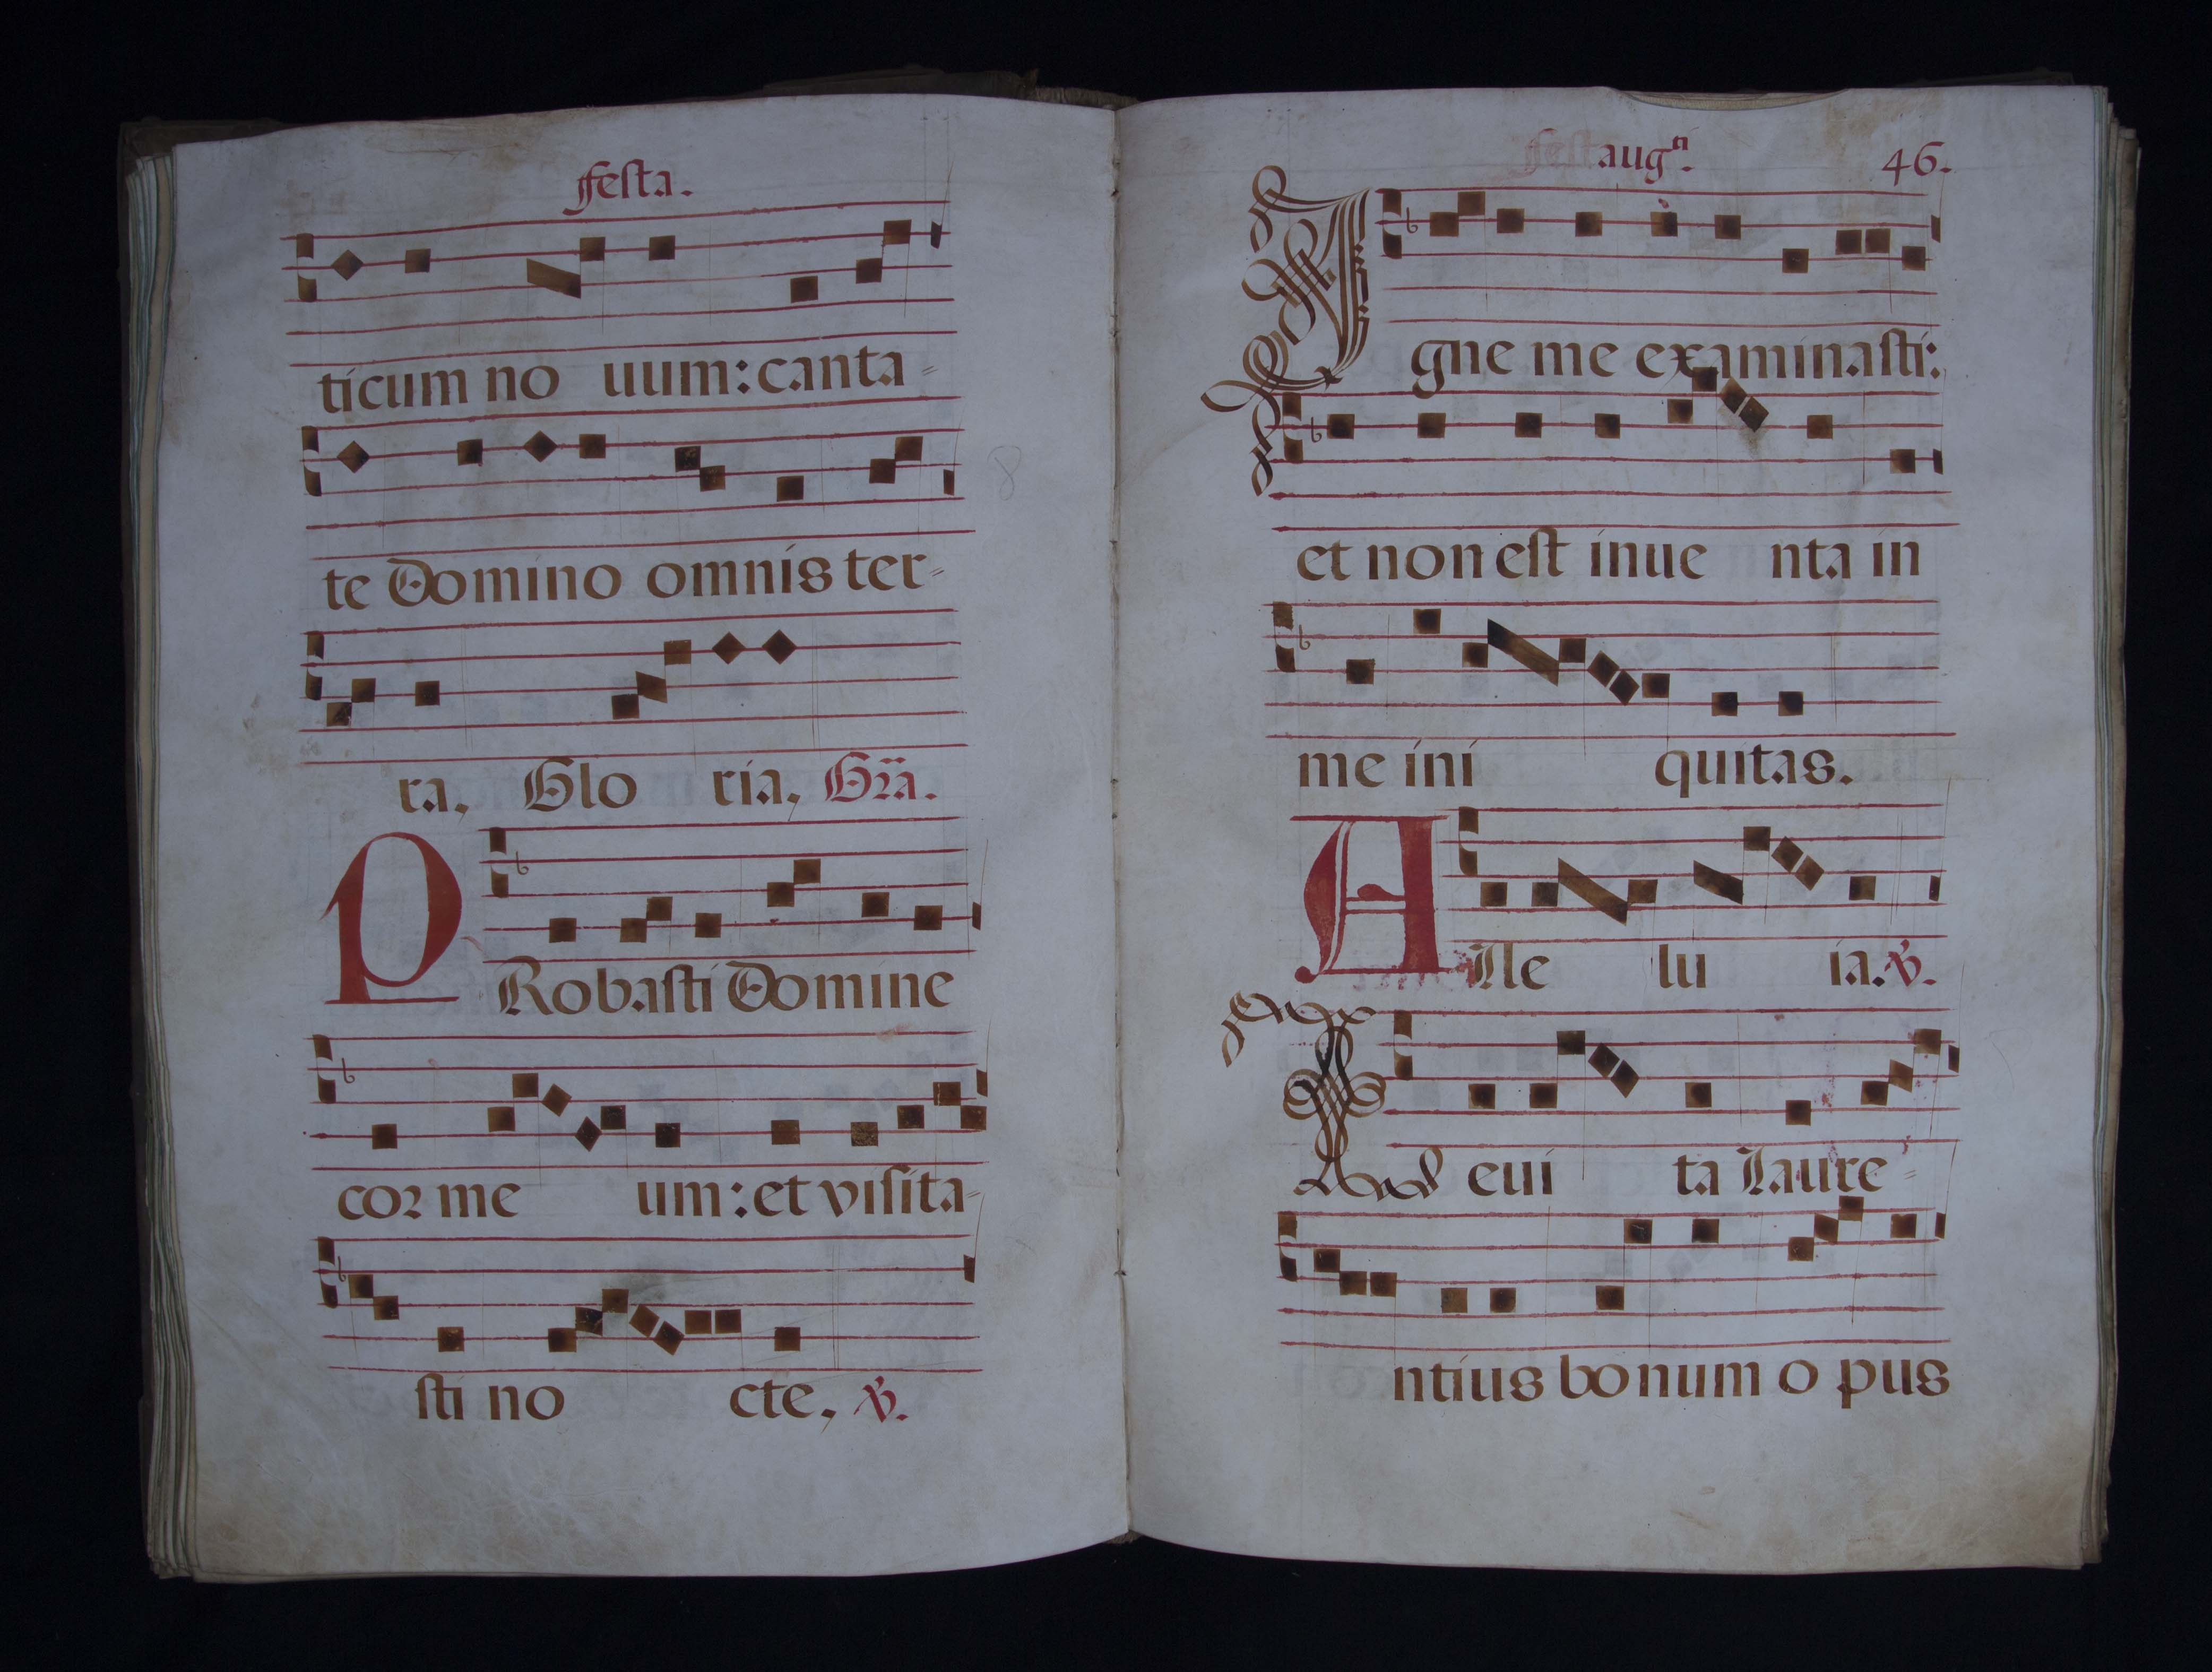 festa.
ticum no uum: canta=
te Domino omnis ter=
ra, Glo ria, Gr̃a.
PRobasti Domine
cor me um: et visita=
sti no cte, ℣.
fest augti. 46.
Igne me examinasti:
et non est inue nta in
me ini quitas.
Alle lu ia. ℣.
Leui ta Laure=
ntius bonum o pus